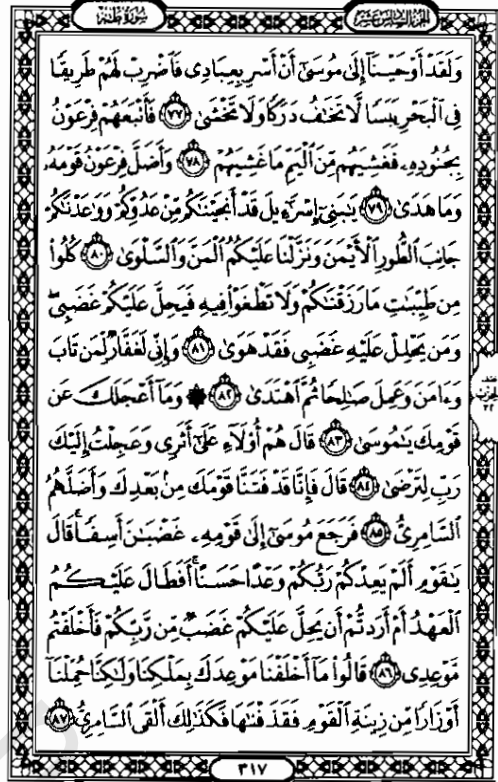 سُورَةُ طه
الجُزْءُ السَّادِسَ عَشَرَ
وَلَقَدْ أَوْحَيْنَآ إِلَىٰ مُوسَىٰٓ أَنْ أَسْرِ بِعِبَادِى فَٱضْرِبْ لَهُمْ طَرِيقًا
فِى ٱلْبَحْرِ يَبَسًا لَّا تَخَٰفُ دَرَكًا وَلَا تَخْشَىٰ ٧٧ فَأَتْبَعَهُمْ فِرْعَوْنُ
بِجُنُودِهِۦ فَغَشِيَهُم مِّنَ ٱلْيَمِّ مَا غَشِيَهُمْ ٧٨ وَأَضَلَّ فِرْعَوْنُ قَوْمَهُۥ
وَمَا هَدَىٰ ٧٩ يَٰبَنِىٓ إِسْرَٰٓءِيلَ قَدْ أَنجَيْنَٰكُم مِّنْ عَدُوِّكُمْ وَوَٰعَدْنَٰكُمْ
جَانِبَ ٱلطُّورِ ٱلْأَيْمَنَ وَنَزَّلْنَا عَلَيْكُمُ ٱلْمَنَّ وَٱلسَّلْوَىٰ ٨٠ كُلُوا۟
مِن طَيِّبَٰتِ مَا رَزَقْنَٰكُمْ وَلَا تَطْغَوْا۟ فِيهِ فَيَحِلَّ عَلَيْكُمْ غَضَبِى ۖ
وَمَن يَحْلِلْ عَلَيْهِ غَضَبِى فَقَدْ هَوَىٰ ٨١ وَإِنِّى لَغَفَّارٌ لِّمَن تَابَ
وَءَامَنَ وَعَمِلَ صَٰلِحًا ثُمَّ ٱهْتَدَىٰ ٨٢ ۞ وَمَآ أَعْجَلَكَ عَن
قَوْمِكَ يَٰمُوسَىٰ ٨٣ قَالَ هُمْ أُو۟لَآءِ عَلَىٰٓ أَثَرِى وَعَجِلْتُ إِلَيْكَ
رَبِّ لِتَرْضَىٰ ٨٤ قَالَ فَإِنَّا قَدْ فَتَنَّا قَوْمَكَ مِنۢ بَعْدِكَ وَأَضَلَّهُمُ
ٱلسَّامِرِىُّ ٨٥ فَرَجَعَ مُوسَىٰٓ إِلَىٰ قَوْمِهِۦ غَضْبَٰنَ أَسِفًا ۚ قَالَ
يَٰقَوْمِ أَلَمْ يَعِدْكُمْ رَبُّكُمْ وَعْدًا حَسَنًا ۚ أَفَطَالَ عَلَيْكُمُ
ٱلْعَهْدُ أَمْ أَرَدتُّمْ أَن يَحِلَّ عَلَيْكُمْ غَضَبٌ مِّن رَّبِّكُمْ فَأَخْلَفْتُم
مَّوْعِدِى ٨٦ قَالُوا۟ مَآ أَخْلَفْنَا مَوْعِدَكَ بِمَلْكِنَا وَلَٰكِنَّا حُمِّلْنَآ
أَوْزَارًا مِّن زِينَةِ ٱلْقَوْمِ فَقَذَفْنَٰهَا فَكَذَٰلِكَ أَلْقَى ٱلسَّامِرِىُّ ٨٧
٣١٧